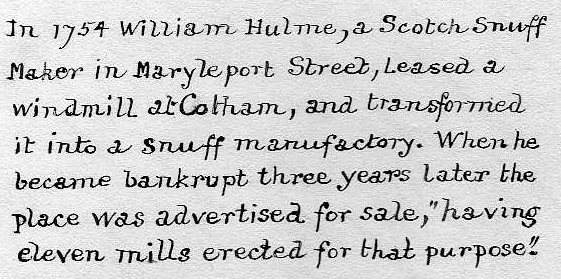 In 1754 William Hulme, a Scotch Snuff
Maker in Maryleport Street, Leased a
windmill at Cotham, and transformed
it into a snuff manufactory. When he
became bankrupt three years later the
place was advertised for sale, "having
eleven mills erected for that purpose".